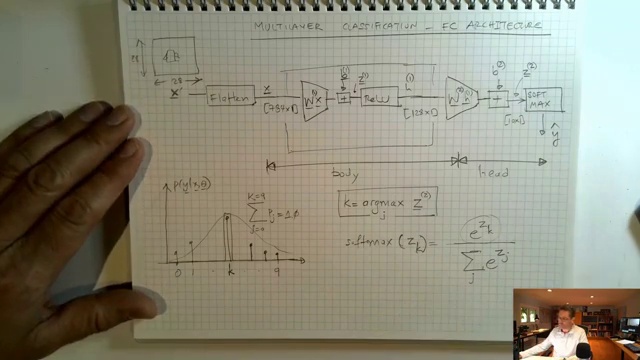 MULTILAYER CLASSIFICATION - FC ARCHITECTURE
28
28
x
Flatten
x
[784x1]
W⁽¹⁾x
b⁽¹⁾
+
z⁽¹⁾
ReLU
h⁽¹⁾
[128x1]
W⁽²⁾h⁽¹⁾
b⁽²⁾
+
z⁽²⁾
[10x1]
SOFT
MAX
ŷ
body
head
p(y|x,θ)
K=9
∑ Pj = 1.0
j=0
0 1 k 9
k = argmax z⁽²⁾
j
softmax (zk) = e^zk
∑ e^zj
j